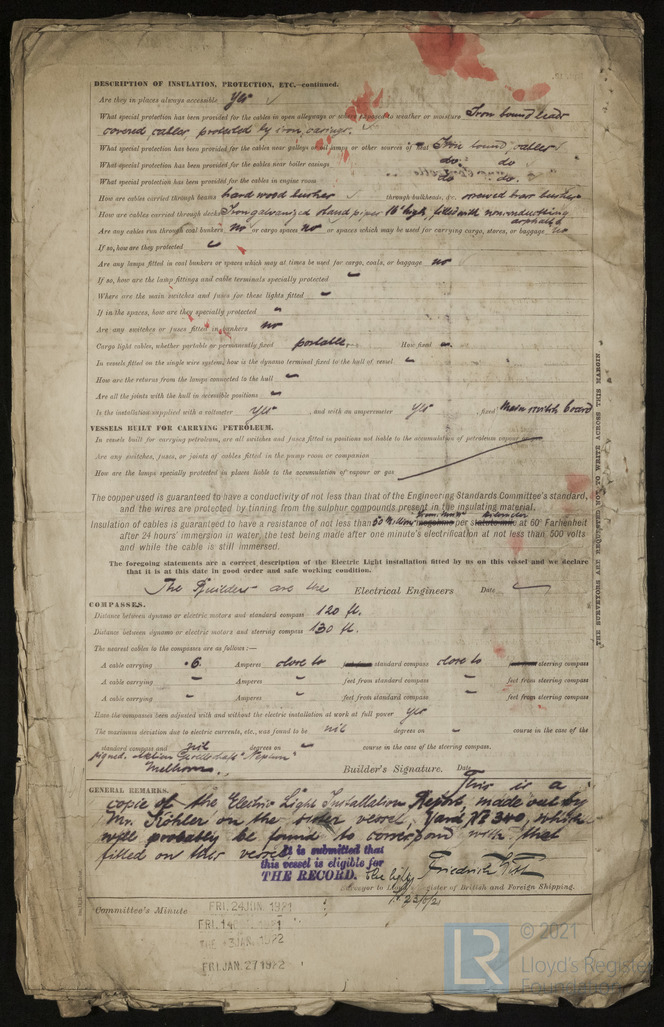 DESCRIPTION OF INSULATION, PROTECTION, ETC.—continued.
Are they in places always accessible yes
What special protection has been provided for the cables in open alleyways or where exposed to weather or moisture Iron bound lead
covered cables protected by iron casings.
What special protection has been provided for the cables near galleys or oil lamps or other sources of heat Iron bound cables
What special protection has been provided for the cables near boiler casings do. do
What special protection has been provided for the cables in engine room do do.
How are cables carried through beams hard wood bushes through bulkheads, &c. screwed brass bushes
How are cables carried through decks Iron galvanized stand pipes 18" high, filled with nonconducting
asphalt
Are any cables run through coal bunkers no or cargo spaces no or spaces which may be used for carrying cargo, stores, or baggage no
If so, how are they protected
Are any lamps fitted in coal bunkers or spaces which may at times be used for cargo, coals, or baggage no
If so, how are the lamp fittings and cable terminals specially protected —
Where are the main switches and fuses for these lights fitted —
If in the spaces, how are they specially protected —
Are any switches or fuses fitted in bunkers no
Cargo light cables, whether portable or permanently fixed portable. How fixed —
In vessels fitted on the single wire system, how is the dynamo terminal fixed to the hull of vessel —
How are the returns from the lamps connected to the hull —
Are all the joints with the hull in accessible positions —
Is the installation supplied with a voltmeter yes and with an amperemeter yes , fixed Main switch board
VESSELS BUILT FOR CARRYING PETROLEUM.
In vessels built for carrying petroleum, are all switches and fuses fitted in positions not liable to the accumulation of petroleum vapour or gas
Are any switches, fuses, or joints of cables fitted in the pump room or companion
How are the lamps specially protected in places liable to the accumulation of vapour or gas
The copper used is guaranteed to have a conductivity of not less than that of the Engineering Standards Committee's standard,
and the wires are protected by tinning from the sulphur compounds present in the insulating material.
Insulation of cables is guaranteed to have a resistance of not less than 50 Million megohms per statute mile at 60° Farhenheit
after 24 hours' immersion in water, the test being made after one minute's electrification at not less than 500 volts
and while the cable is still immersed.
The foregoing statements are a correct description of the Electric Light installation fitted by us on this vessel and we declare
that it is at this date in good order and safe working condition.
The Builders are the Electrical Engineers Date
COMPASSES.
Distance between dynamo or electric motors and standard compass 120 ft.
Distance between dynamo or electric motors and steering compass 130 ft.
The nearest cables to the compasses are as follows:—
A cable carrying .6 Amperes close to standard compass close to steering compass
A cable carrying — Amperes — feet from standard compass — feet from steering compass
A cable carrying — Amperes — feet from standard compass — feet from steering compass
Have the compasses been adjusted with and without the electric installation at work at full power yes
The maximum deviation due to electric currents, etc., was found to be nil degrees on — course in the case of the
standard compass and nil degrees on — course in the case of the steering compass.
signed. Aktien Gesellschaft "Neptun"
Builder's Signature. Date
GENERAL REMARKS.
This is a
copie of the Electric Light Installation Report, made out by
Mr. Köhler on the sister vessel, Yard No 340, which
will probably be found to correspond with that
fitted on this vessel.
It is submitted that
this vessel is eligible for
THE RECORD.
Surveyor to Lloyd's Register of British and Foreign Shipping.
Committee's Minute
FRI. 24 JUN. 1921
FRI. 14
TUE. 3 JAN. 1922
FRI. JAN. 27 1922
THE SURVEYORS ARE REQUESTED NOT TO WRITE ACROSS THIS MARGIN
LR
© 2021
Lloyd's Register
Foundation